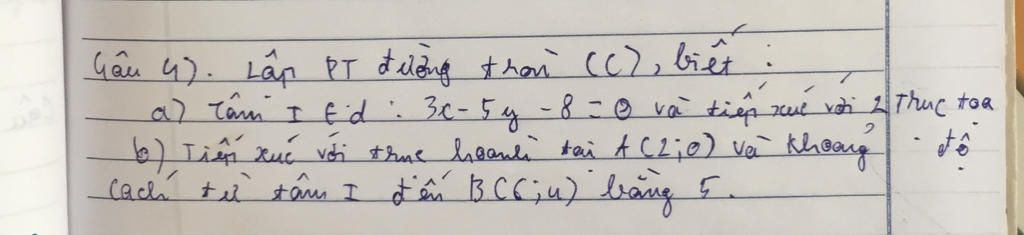 Câu 4). Lập PT đường tròn (C), biết :
a) Tâm I ∈ d : 3x - 5y - 8 = 0 và tiếp xúc với 2 trục tọa độ
b) Tiếp xúc với trục hoành tại A(2;0) và khoảng
cách từ tâm I đến B(6;4) bằng 5.